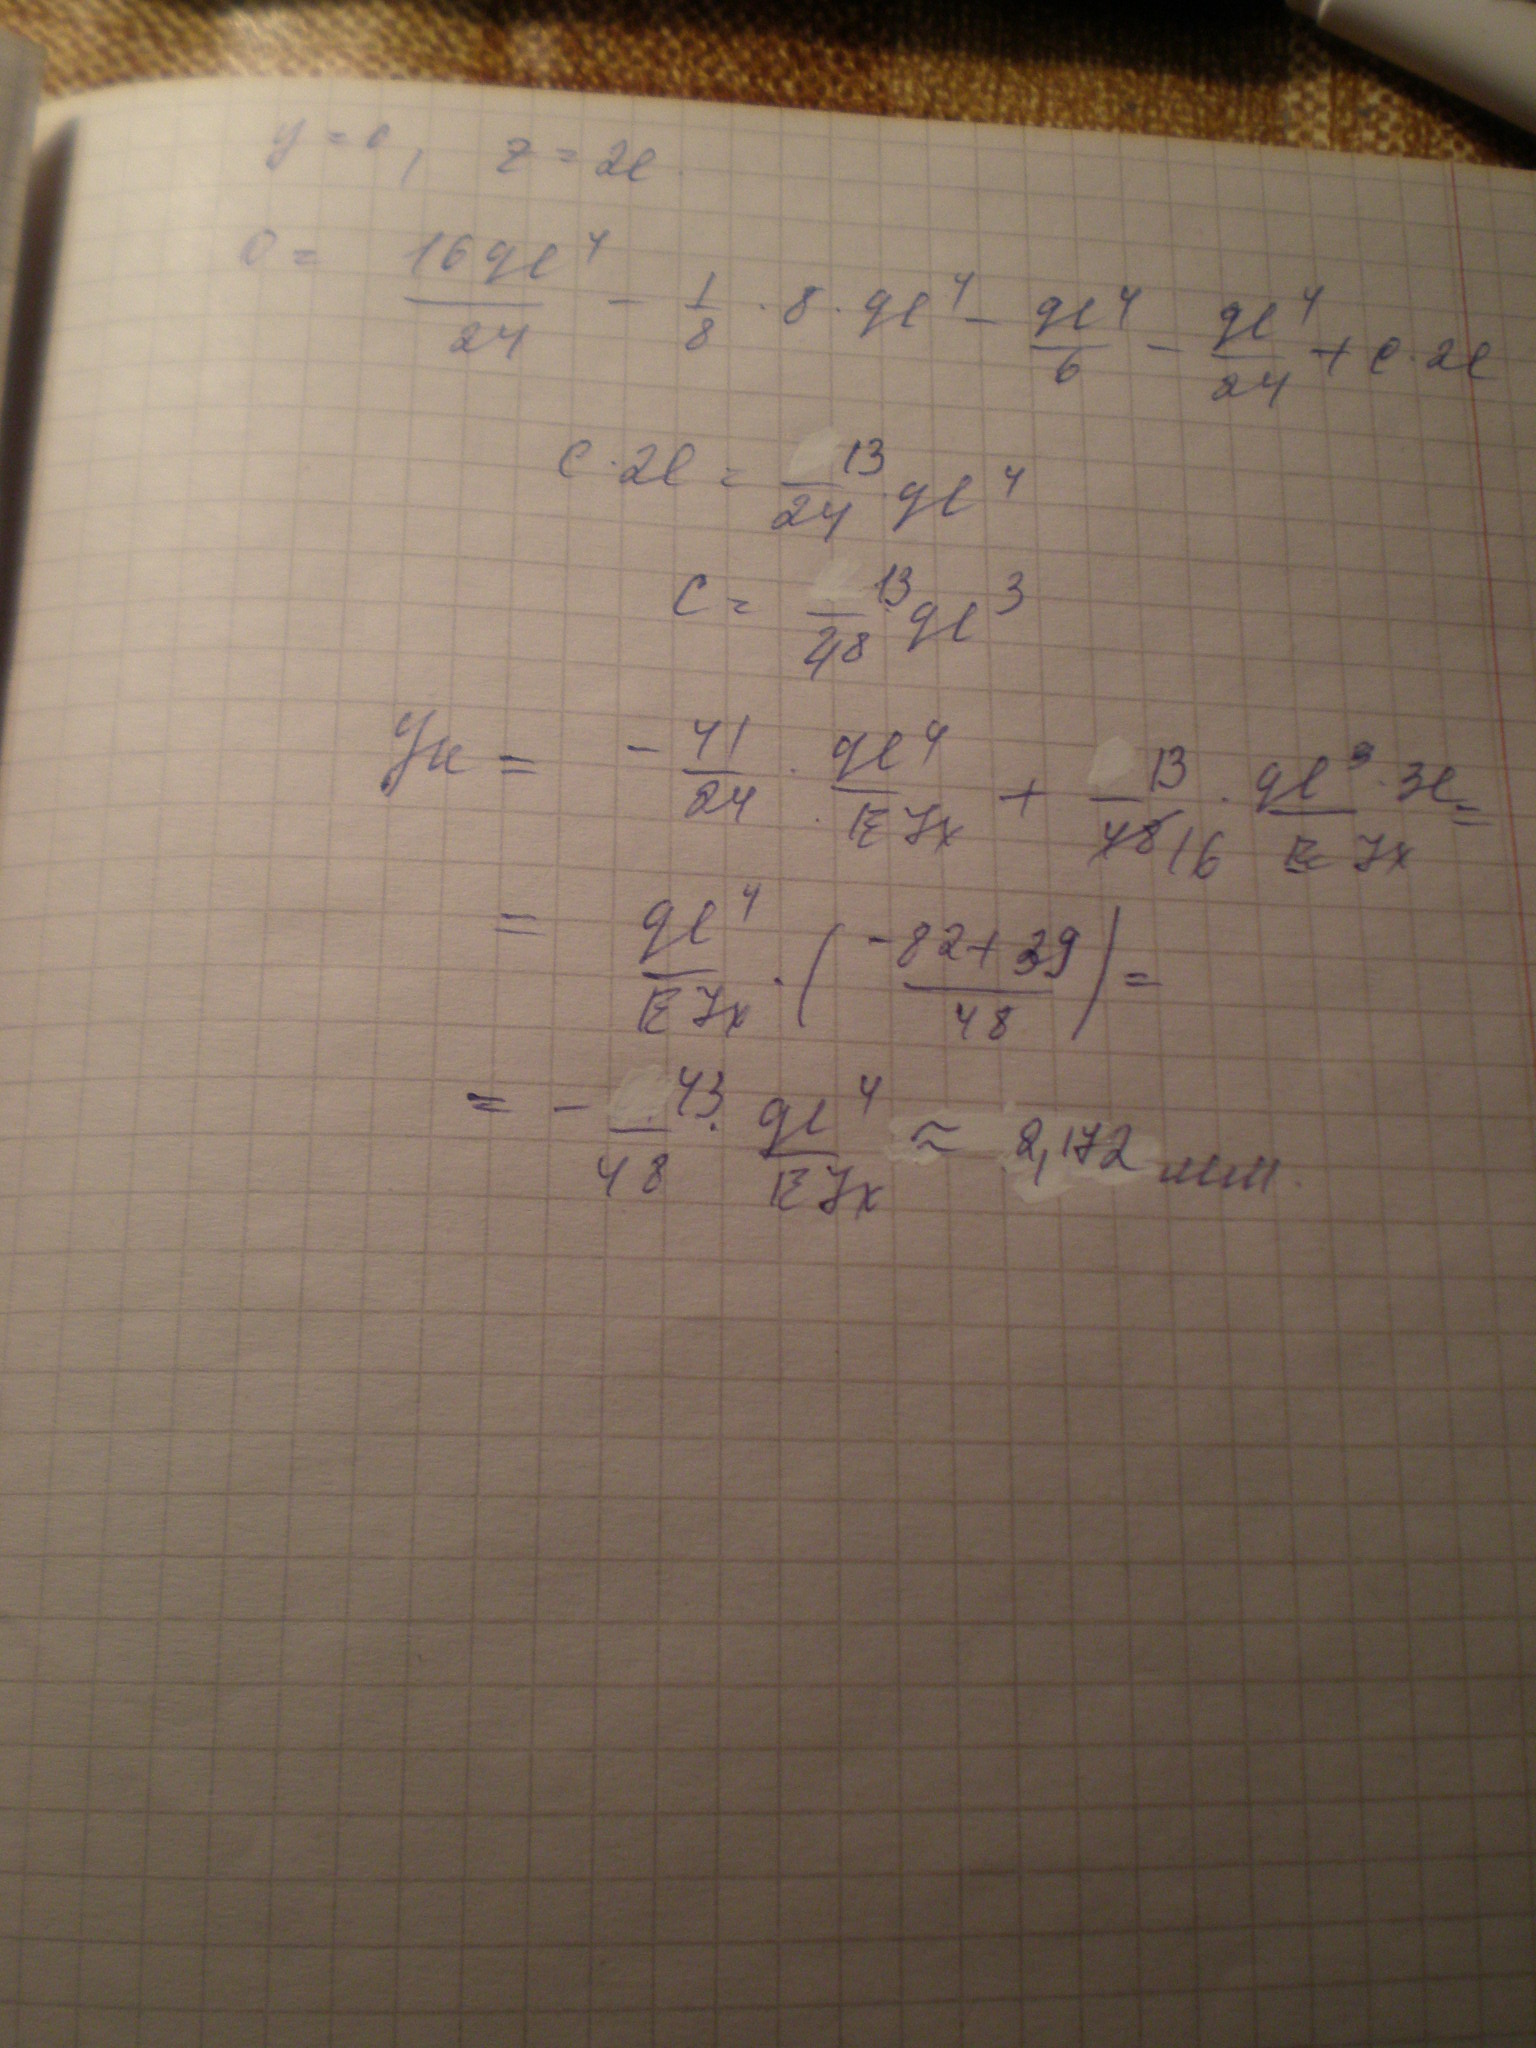 y = 0, z = 2l
0 = 16ql⁴/24 - 1/8 · 8 · ql⁴ - ql⁴/6 - ql⁴/24 + C · 2l
C · 2l = 13/24 ql⁴
C = 13/48 ql³
yк = - 41/24 · ql⁴/EJx + 13/48 16 · ql³ · 3l/EJx =
= ql⁴/EJx · (-82 + 39/48) =
= - 43/48 · ql⁴/EJx ≈ 2,172 мм.